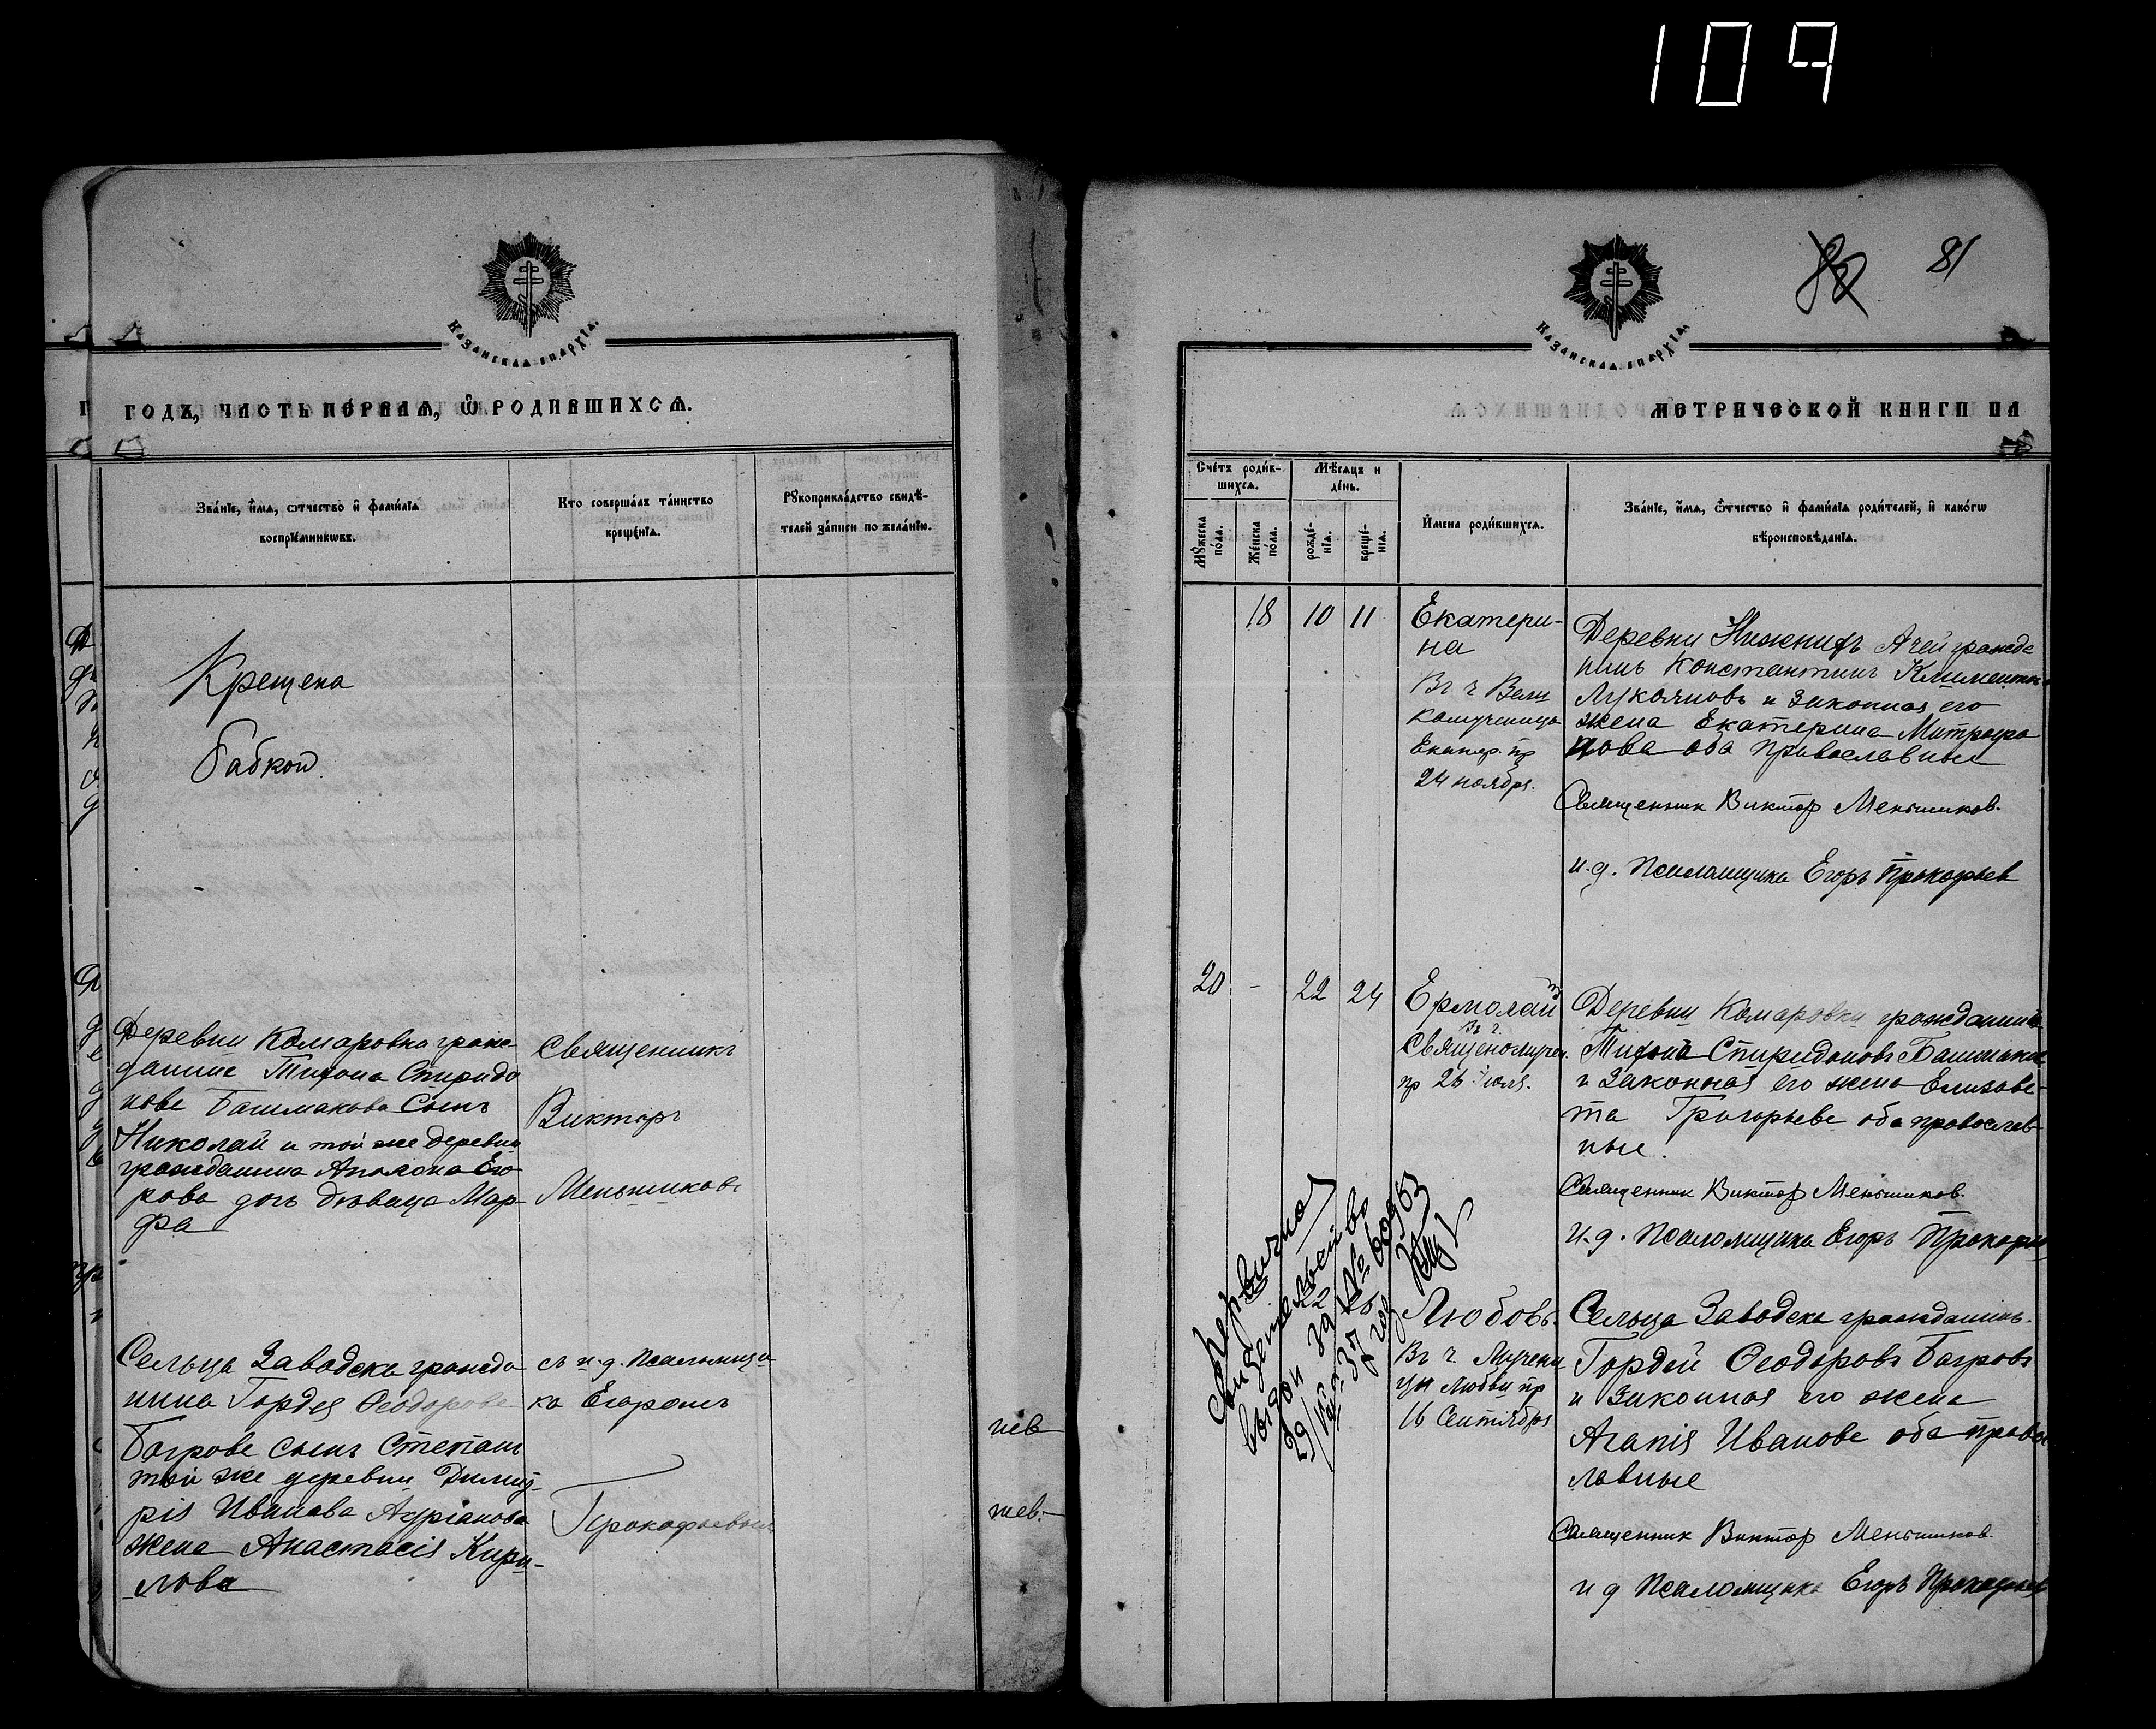 109
Казанская епархія.
ГОДЪ, ЧАСТЬ ПЕРВАЯ, Ѿ РОДИВШИХСЯ.
Зва́нїе, и҆́мѧ, ѻтчество и҆ фами́лїѧ
воспрїе́мникѡвъ.
Кто соверша́лъ та́инство
креще́нїѧ.
Рꙋкоприкла́дство свидѣ́-
телей за́писи по жела́нїю.
Крещена
бабкой
Деревни Комаровка граж-
данина Тихона Спиридо
нова Башмакова сынъ
Николай и той же деревни
гражданина Аполона Его
рова дочь дѣвица Мар-
фа
Священникъ
Викторъ
Меньшиковъ
Сельца Заводска гражда
нина Гордея Ѳеодорова
Багрова сынъ Степанъ
той же деревни Димит-
рія Иванова Адріанова
жена Анастасія Кири-
лова
съ и.д. псаломщи
ка Егоромъ
Прокофьевымъ
нев
нев.
Казанская епархія.
81
МЕТРИЧЕСКОЙ КНИГИ НА
Сче́тъ роди́в-
шихсѧ.
Мѣ́сѧцъ и
де́нь.
Мꙋ́жеска
по́ла.
Же́нска
по́ла.
рожде́-
нїѧ.
креще́-
нїѧ.
И҆мена роди́вшихсѧ.
Зва́нїе, и҆́мѧ, ѻ҆́тчество и҆ фами́лїѧ роди́телей, и҆ како́гѡ
вѣроисповѣ́данїѧ.
18 10 11
Екатери-
на
Въ ч Вели
комученицы
Екатер. пр
24 ноября.
Деревни Нижнихъ Ачей гражда
нинъ Константинъ Климентов
Лукояновъ и законная его
жена Екатерина Митрофа
нова оба православные
Священник Виктор Меньшиков.
и.д. псаломщика Егоръ Прокофьев
20 - 22 24
Ермолай
Въ ч.
Священомучен.
пр 26 Июля.
Деревни Комаровки гражданинъ
Тихонъ Спиридоновъ Башмаков
и законная его жена Елизаве-
та Григорьева оба православ-
ные.
Священник Виктор Меньшиков.
и.д. псаломщика Егоръ Прокофь
Первичное
свидетельство
выдан за № 60963
29/VII-37 год
22 26
Любовь.
Въ ч. Мучени
цы Любви пр
16 Сентября
Сельца Заводска гражданинъ.
Гордей Ѳеодоровъ Багровъ
и законная его жена
Агапія Иванова оба право
лавные
Священник Виктор Меньшиков.
и д псаломщика Егоръ Прокофьев